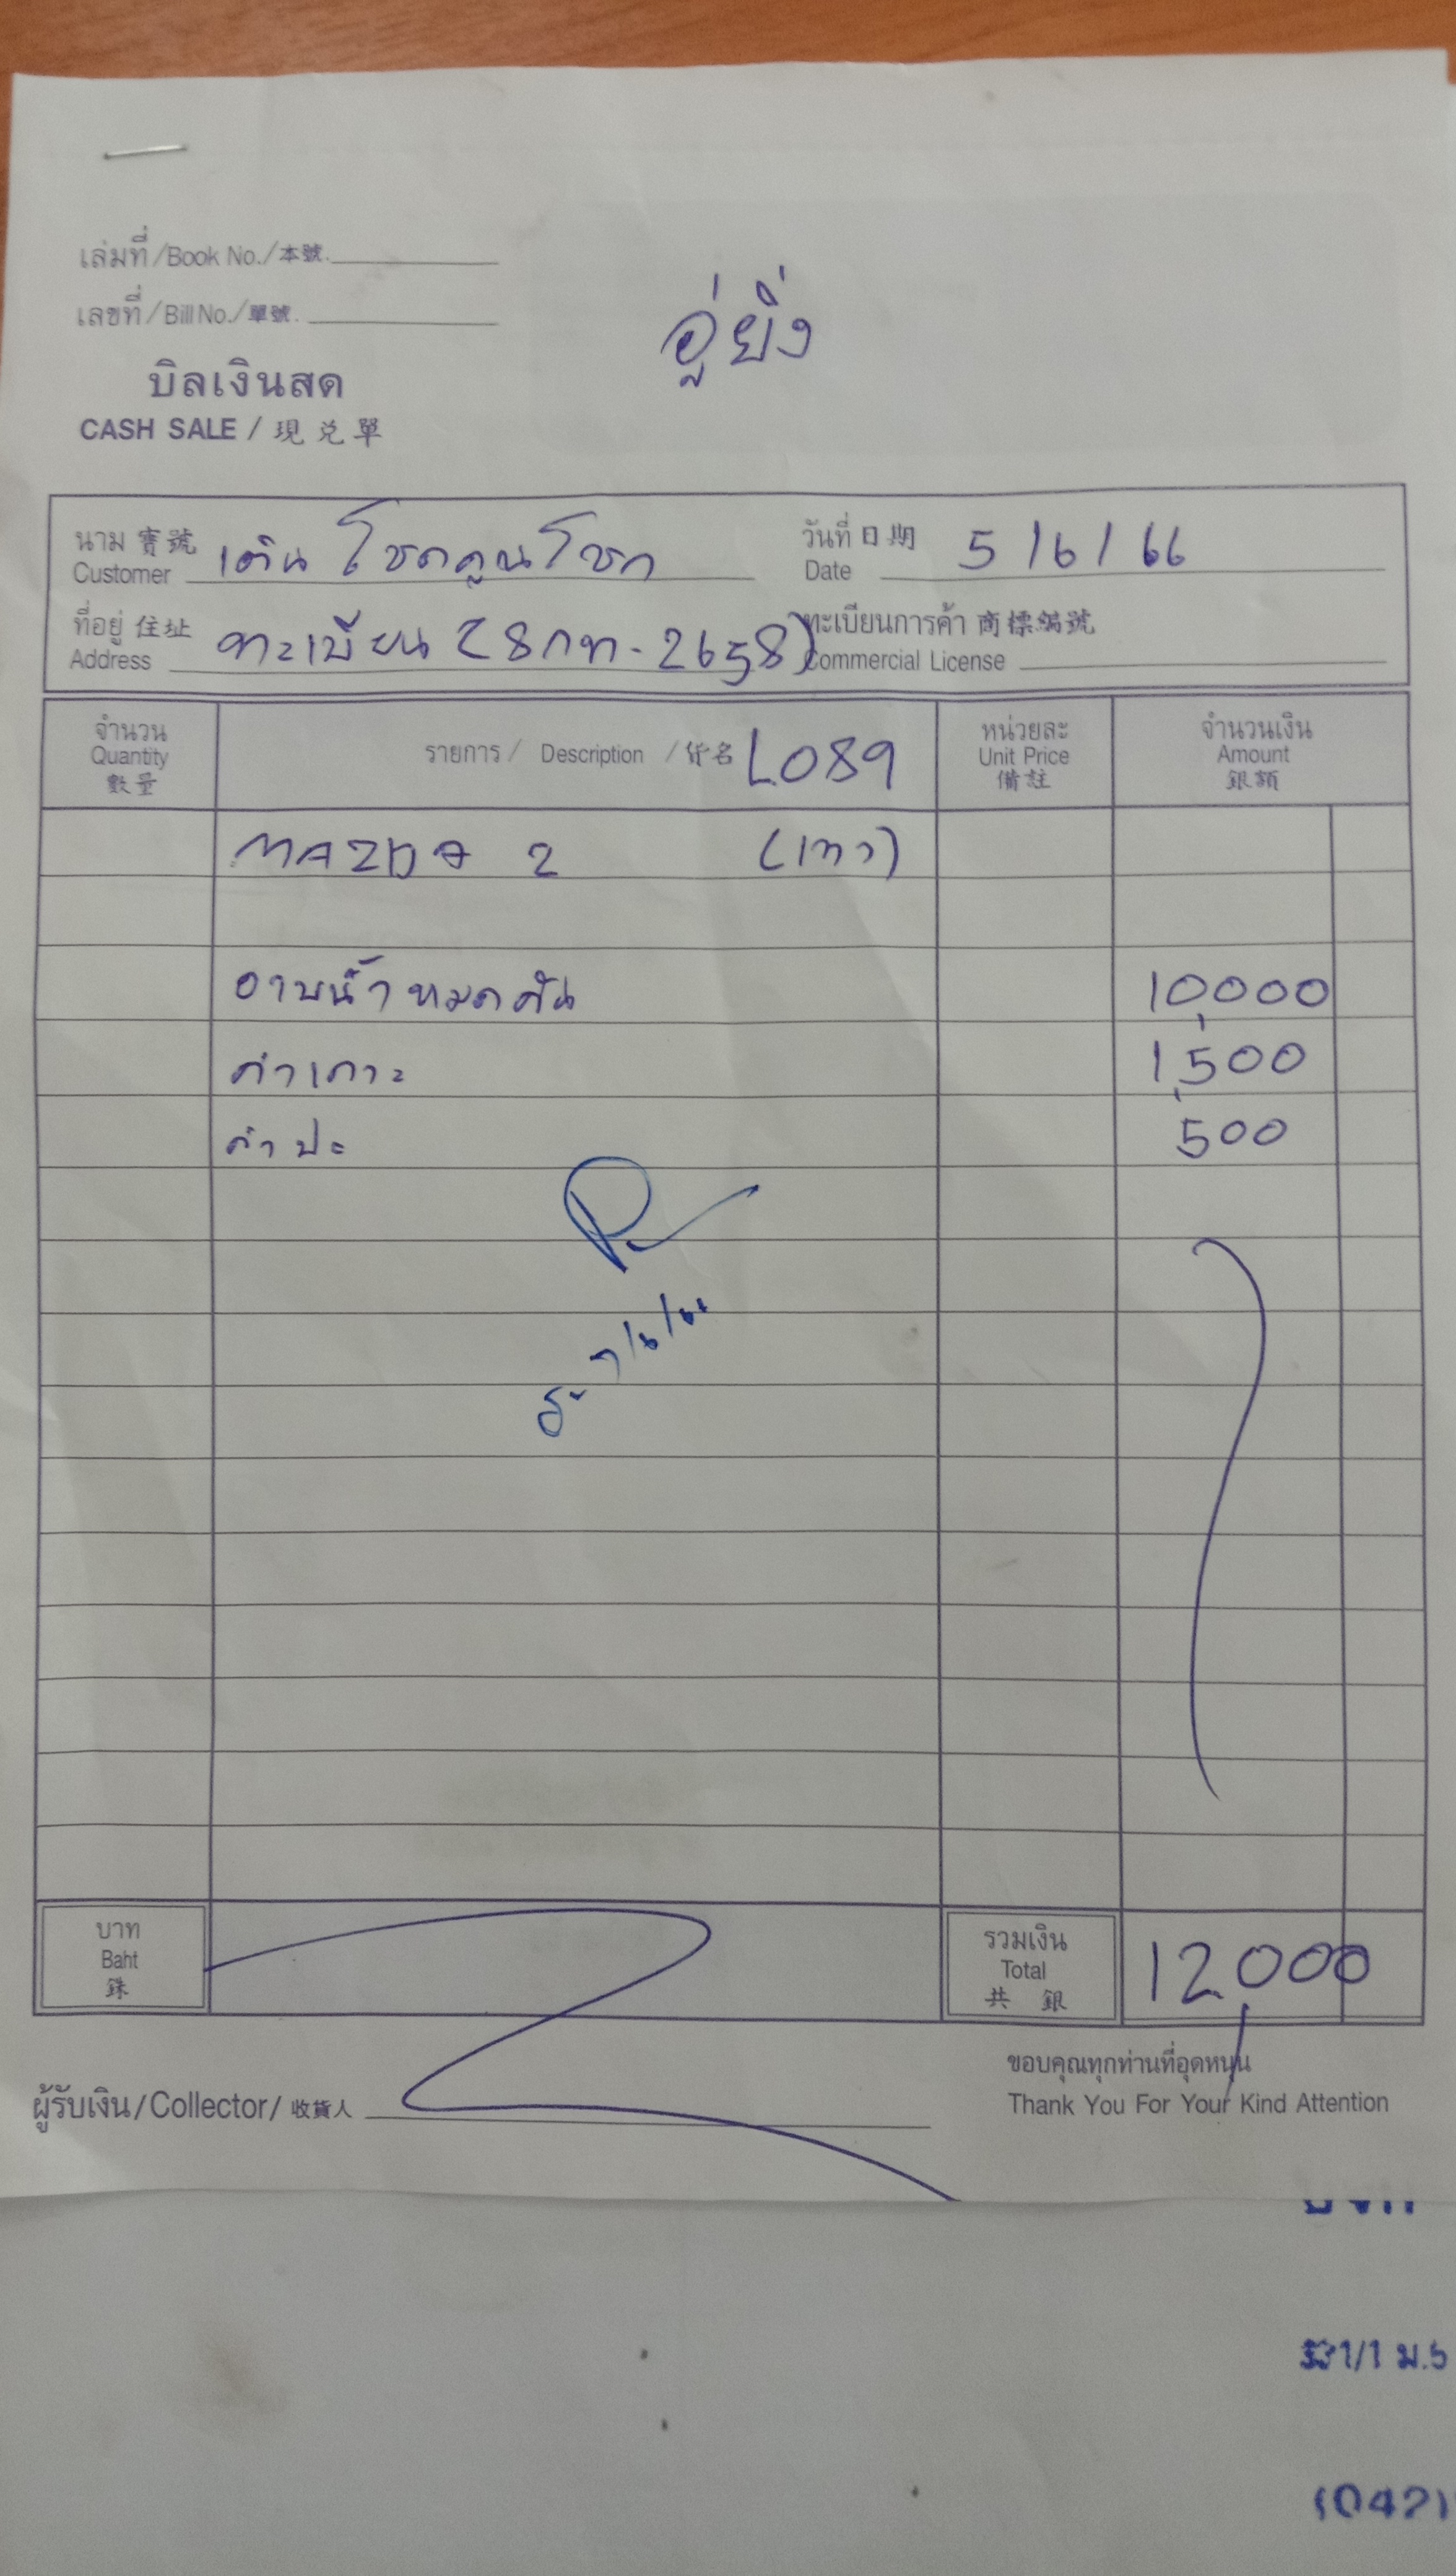 เล่มที่/Book No./本號.
เลขที่/Bill No./單號.
อู่ยิ่ง
บิลเงินสด
CASH SALE / 現兑單
นาม 寶號 Customer เต้น โชคคูณโชค วันที่ 日期 Date 5/6/66
ที่อยู่ 住址 Address ทะเบียน (8กท-2658) ทะเบียนการค้า 商標編號 Commercial License
จำนวน Quantity 數量 รายการ / Description / 件名 L089 หน่วยละ Unit Price 備註 จำนวนเงิน Amount 銀額
MAZDA 2 (เทา)
อาบน้ำหมดคัน 10,000
ค่าเคาะ 1,500
ค่าปะ 500
7/6/66
บาท Baht 銖 รวมเงิน Total 共銀 12,000
ขอบคุณทุกท่านที่อุดหนุน
ผู้รับเงิน/Collector/收貨人 Thank You For Your Kind Attention
1/1 ม.5
(042)